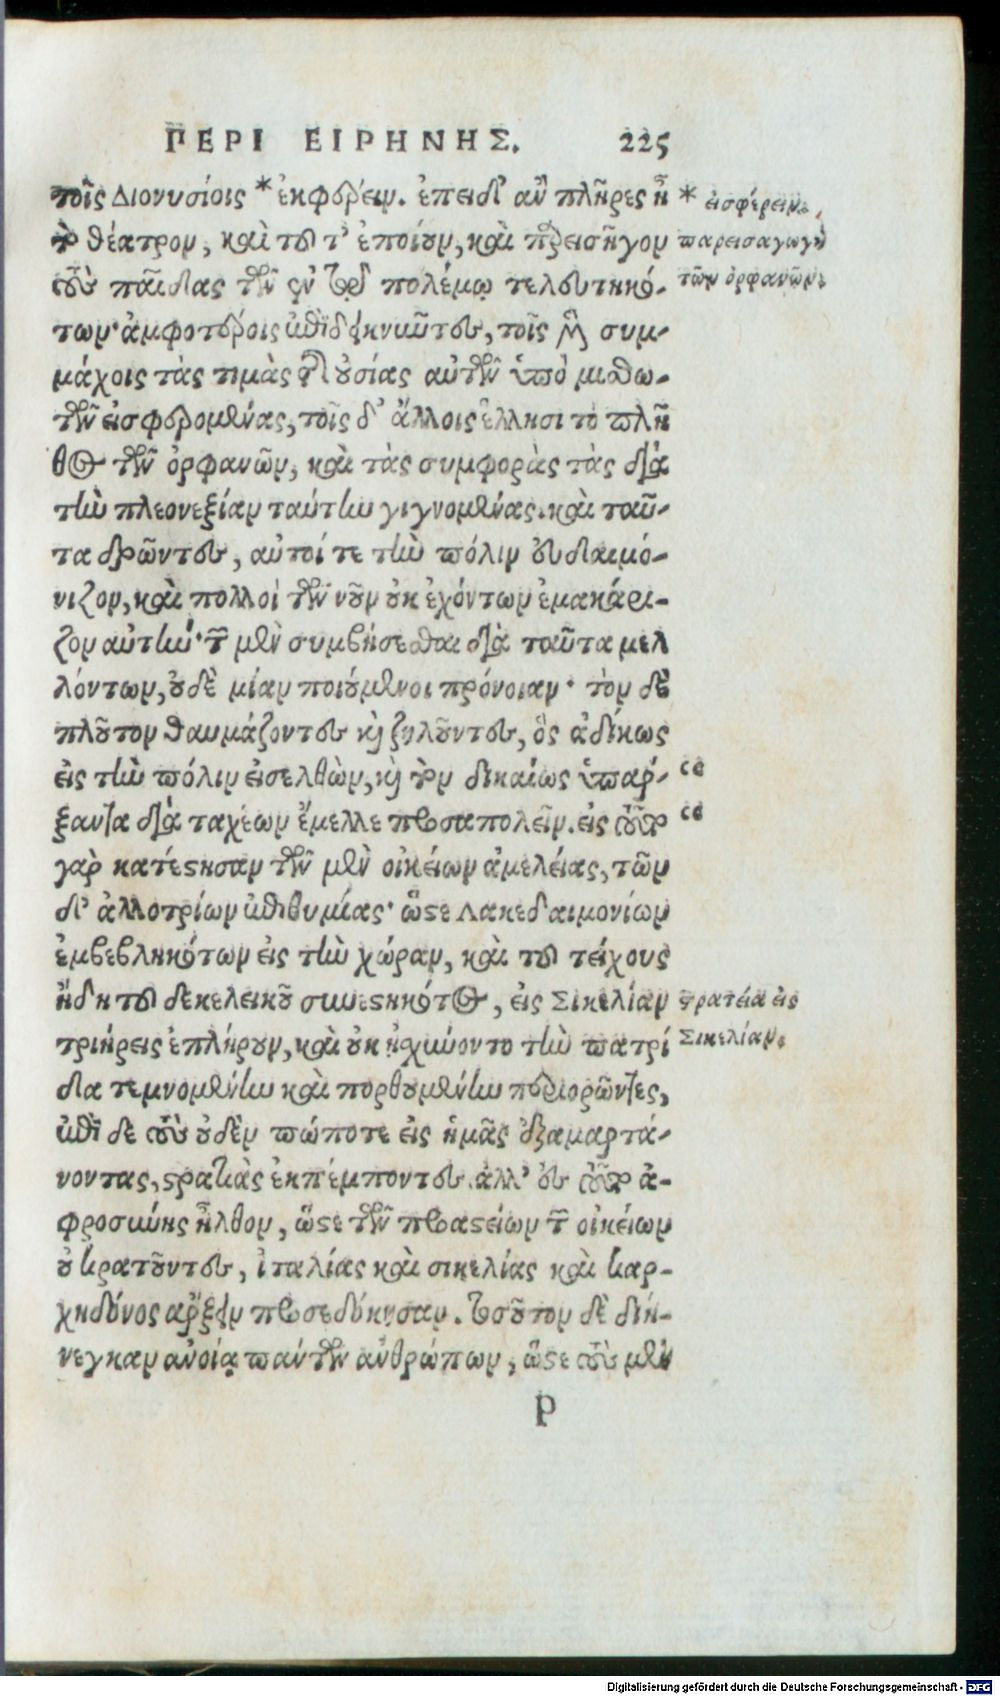 ΠΕΡΙ ΕΙΡΗΝΗΣ. 225
τοῖς Διονυσίοις * ἐκφέρειν. ἐπειδ' ἂν πλῆρες ᾖ
* εἰσφέρειν.
τὸ θέατρον, καὶ τοῦτ' ἐποίουν, καὶ παρεισῆγον
παρεισαγωγὴ
τοὺς παῖδας τῶν ἐν τῷ πολέμῳ τετελευτηκό-
τῶν ὀρφανῶν.
των· ἀμφοτέροις ἐπιδεικνύοντες, τοῖς μὲν συμ-
μάχοις τὰς τιμὰς τῆς οὐσίας αὐτῶν ὑπὸ μισθω-
τῶν εἰσφερομένας, τοῖς δ' ἄλλοις ἕλλησι τὸ πλῆ
θος τῶν ὀρφανῶν, καὶ τὰς συμφορὰς τὰς διὰ
τὴν πλεονεξίαν ταύτην γιγνομένας. καὶ ταῦ-
τα δρῶντες, αὐτοί τε τὴν πόλιν εὐδαιμό-
νιζον, καὶ πολλοὶ τῶν νοῦν οὐκ ἐχόντων ἐμακάρι-
ζον αὐτήν· τῶν μὲν συμβήσεσθαι διὰ ταῦτα μελ
λόντων, οὐδὲ μίαν ποιούμενοι πρόνοιαν· τὸν δὲ
πλοῦτον θαυμάζοντες καὶ ζηλοῦντες, ὃς ἀδίκως
εἰς τὴν πόλιν εἰσελθὼν, καὶ τὸν δικαίως ὑπάρ-
ξαντα διὰ ταχέων ἔμελλε προσαπολεῖν. εἰς τοῦτο
γὰρ κατέστησαν τῶν μὲν οἰκείων ἀμελείας, τῶν
δ' ἀλλοτρίων ἐπιθυμίας· ὥστε Λακεδαιμονίων
ἐμβεβληκότων εἰς τὴν χώραν, καὶ τοῦ τείχους
ἤδη τοῦ δεκελεικοῦ συνεστηκότος, εἰς Σικελίαν
στρατεία εἰς
τριήρεις ἐπλήρουν, καὶ οὐκ ᾐσχύνοντο τὴν πατρί
Σικελίαν.
δα τεμνομένην καὶ πορθουμένην περιορῶντες,
ἐπὶ δὲ τοὺς οὐδὲν πώποτε εἰς ἡμᾶς ἐξαμαρτά-
νοντας, στρατιὰς ἐκπέμποντες. ἀλλ' εἰς τοῦτο ἀ-
φροσύνης ἦλθον, ὥστε τῶν προαστείων τῶν οἰκείων
οὐ κρατοῦντες, ἰταλίας καὶ σικελίας καὶ καρ-
χηδόνος ἄρξειν προσεδόκησαν. τοσοῦτον δὲ διή-
νεγκαν ἀνοίᾳ πάντων ἀνθρώπων, ὥστε τοὺς μὲν
P
Digitalisierung gefördert durch die Deutsche Forschungsgemeinschaft - DFG